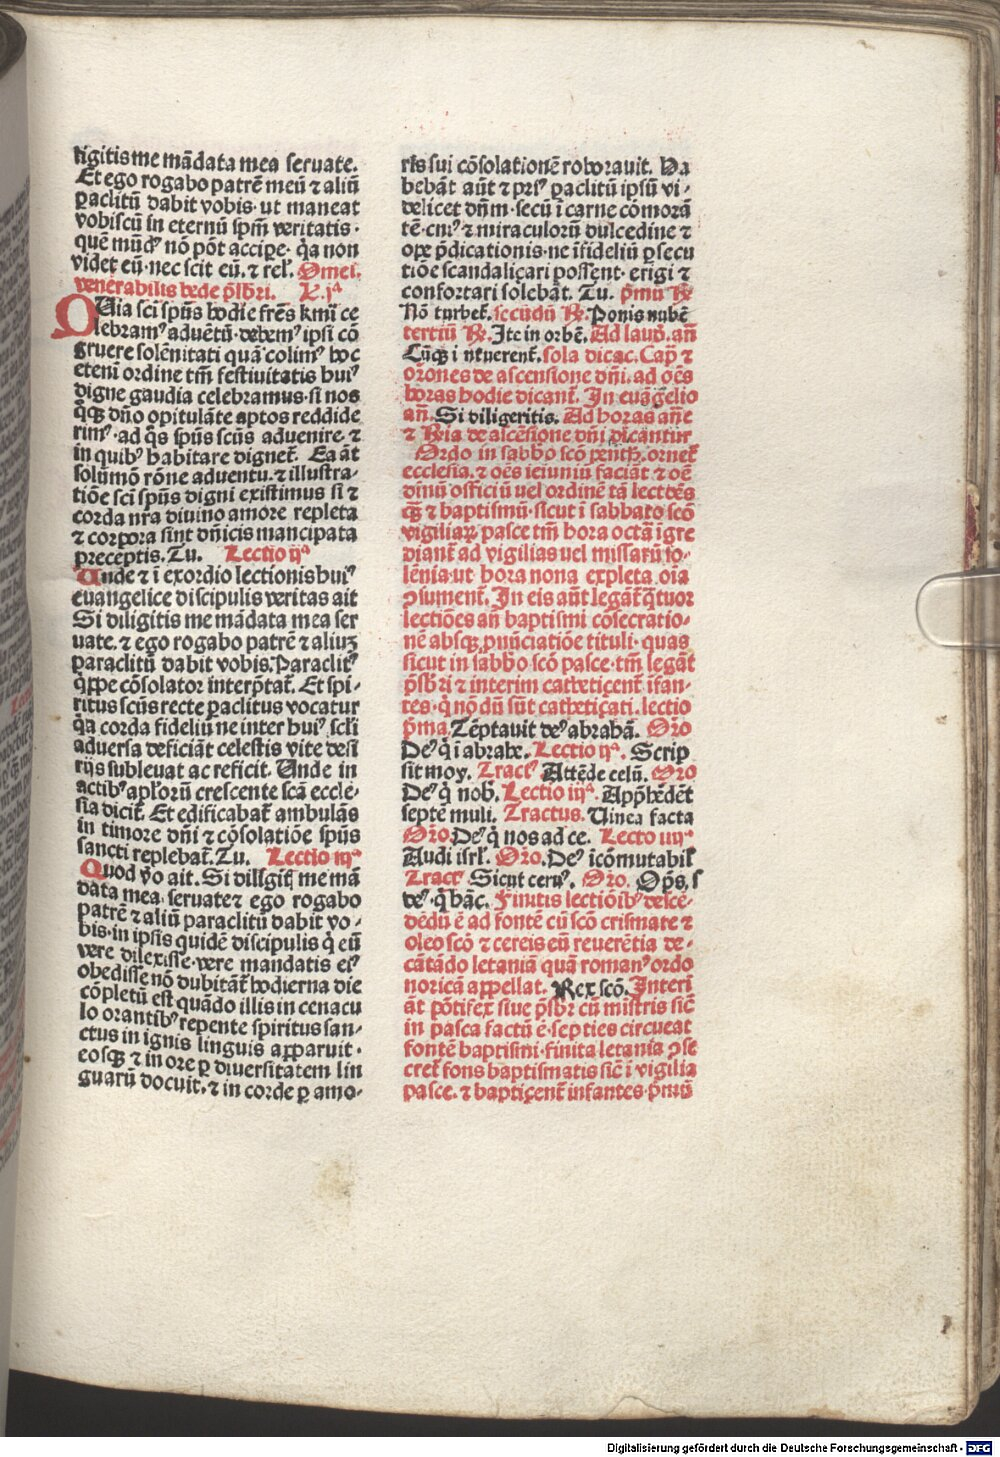 ligitis me mādata mea seruate.
Et ego rogabo patrē meū ⁊ aliū
paclitū dabit vobis· ut maneat
vobiscū in eternū spm̄ veritatis·
quē mūdꝰ nō pōt accipe· q̇a non
videt eū·nec scit eū. ⁊ rel̄. Omei.
venerabilis bede p̄sbri. L. jᵃ
QUia sc̄i sp̄us hodie frēs kmī ce
lebramꝰ aduētū·debemꝰ ipsi cō
gruere solēnitati quā colimꝰ hoc
etenī ordine tm̄ festiuitatis huiꝰ
digne gaudia celebramus·si nos
q̄q̄ dn̄o opitulāte aptos reddide
rimꝰ·ad q̄s sp̄us sc̄us aduenire·⁊
in quibꝰ habitare dignet᷑. Ea āt
solūmō rōne aduentu·⁊ illustra-
tiōe sc̄i sp̄us digni existimus si ⁊
corda nr̄a diuino amore repleta
⁊ corpora sint dn̄icis mancipata
preceptis. Tu. Lectio ijᵃ
Unde ⁊ ī exordio lectionis huiꝰ
euangelice discipulis veritas ait
Si diligitis me mādata mea ser
uate. ⁊ ego rogabo patrē ⁊ aliuꝫ
paraclitū dabit vobis. Paraclitꝰ
q̇ppe cōsolator interp̄tat᷑. Et spi-
ritus sc̄us recte paclitus vocatur
q̇a corda fideliū ne inter huiꝰ sc̄li
aduersa deficiāt celestis vite desi
rijs subleuat ac reficit. Unde in
actibꝰ apl̄orū crescente sc̄a eccle-
sia dicit᷑. Et edificabat᷑ ambulās
in timore dn̄i ⁊ cōsolatiōe sp̄us
sancti replebat᷑. Tu. Lectio iijᵃ
Quod v̄o ait. Si diligit̄ me mā
data mea seruate⁊ ego rogabo
patrē ⁊ aliū paraclitū dabit vo-
bis·in ipsis quidē discipulis q̇ eū
vere dilexisse·vere mandatis eiꝰ
obedisse nō dubitāt᷑ hodierna die
cōpletū est quādo illis in cenacu
lo orantibꝰ repente spiritus san-
ctus in ignis linguis apparuit·
eosqꝫ ⁊ in ore ꝑ diuersitatem lin
guarū docuit·⁊ in corde ꝑ amo-
ris sui cōsolationē roborauit. Ha
bebāt aūt ⁊ priꝰ paclitū ipsū vi-
delicet dn̄m·secū ī carne cōmorā
tē·cuiꝰ ⁊ miraculorū dulcedine ⁊
ope p̄dicationis·ne īfideliū ꝑsecu
tiōe scandaliçari possent· erigi ⁊
confortari solebāt. Tu. p̄mū ℞
Nō turbet᷑. secūdū ℞. Ponis nubē
tertiū ℞. Ite in orbē. Ad laud̄. an̄
Cūqꝫ ī ntuerent᷑. sola dicat᷑. Cap̄ ⁊
orōnes de ascensione dn̄i. ad oēs
horas hodie dicant᷑. In euāgelio
an̄. Si diligeritis. Ad horas an̄e
⁊ ℞ia de ascēsione dn̄i dicantur
Ordo in sabb̄o sc̄o pent̄h. ornet᷑
ecclesia. ⁊ oēs ieiuniū faciāt ⁊ oē
diuīū officiū uel ordinē tā lectōēs
qꝫ ⁊ baptismū·sicut ī sabbato sc̄o
vigiliaꝝ pasce tm̄ hora octā īgre
diant᷑ ad vigilias uel missarū so-
lēnia·ut hora nona expleta oīa
ꝯsument᷑. In eis aūt legāt᷑ q̄tuor
lectiōes an̄ baptismi cōsecratio-
nē absqꝫ pnūciatiōe tituli· quas
sicut in sabb̄o sc̄o pasce·tm̄ legāt
p̄sbri ⁊ interim catheticent᷑ īfan-
tes·q̇ nō dū sūt cathetiçati. lectio
p̄ma. Tēptauit deꝰ abrabā. Oro
Deꝰ q̇ ī abrahe. Lectio ijᵃ. Scrip
sit moy. Tractꝰ Attēde celū. Oro
Deꝰ q̇ nob̄. Lectio iijᵃ. App̄hēdēt
septē muli. Tractus. Uinea facta
Oro. Deꝰ q̇ nos ad ce. Lectio iiijᵃ
Audi isrl̄. Oro. Deꝰ īcōmutabil᷑
Tractꝰ Sicut ceruꝰ. Oro. Op̄s. s
deꝰ·q̇ hāc. Finitis lectiōibꝰ desce-
dēdū ē ad fontē cū sc̄o crismate ⁊
oleo sc̄o ⁊ cereis cū reuerētia de-
cātādo letaniā quā romanꝰ ordo
noricā appellat. Rex sc̄o. Interi
āt pōtifex siue p̄sbr cū mīstris sic̄
in pasca factū ē·septies circueat
fontē baptismi·finita letania ꝯse
cret᷑ fons baptismatis sic̄ ī vigilia
pasce. ⁊ baptiçent᷑ infantes·p̄mū
Digitalisierung gefördert durch die Deutsche Forschungsgemeinschaft - DFG